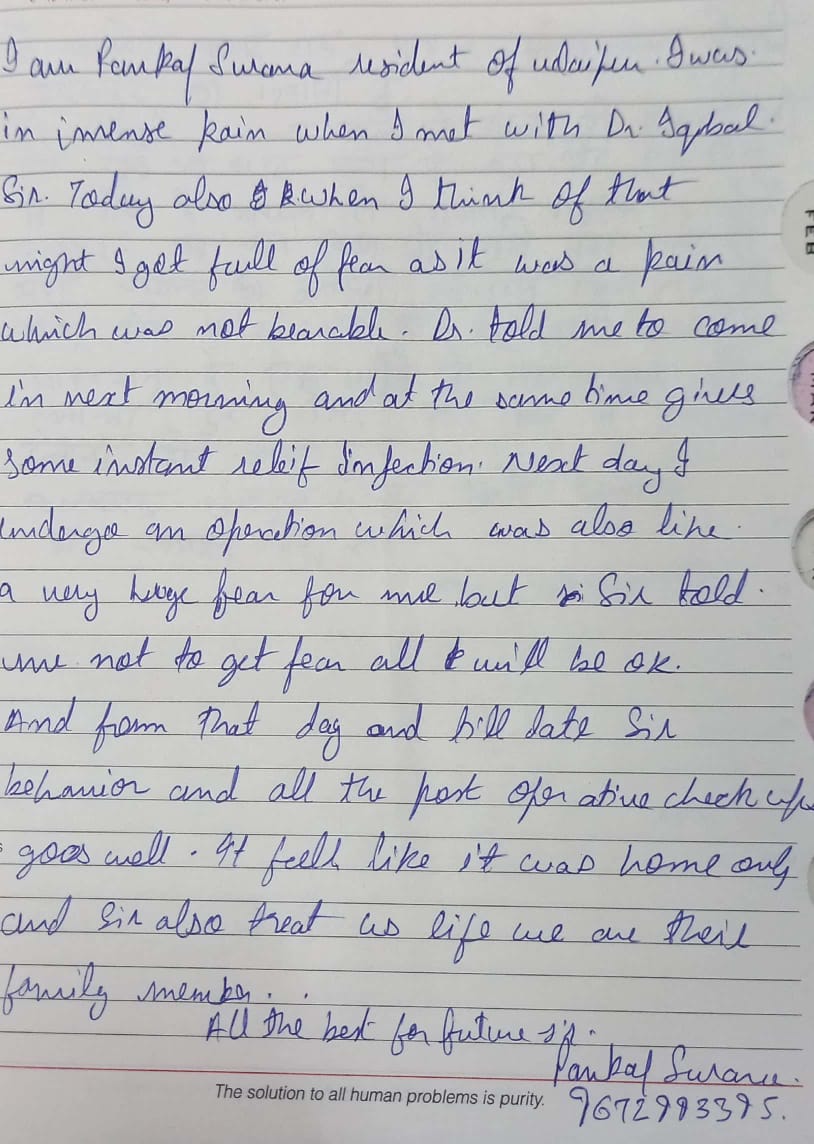 I am Pankaj Surana resident of udaipur. I was.
in imense pain when I met with Dr. Iqbal.
Sir. Today also when I think of that
night I get full of fear as it was a pain
which was not bearable. Dr. told me to come
in next morning and at the same time gives
some instant releif Iinjection. Next day I
undergo an operation which was also like.
a very huge fear for me but Sir told.
me not to get fear all will be ok.
And from that day and till date Sir
behavior and all the post operative check up
goes well. It feell like it was home only
and Sir also treat us life we are their
family member. .
All the best for future sir.
Pankaj Surana.
The solution to all human problems is purity.
9672993395.
FEB